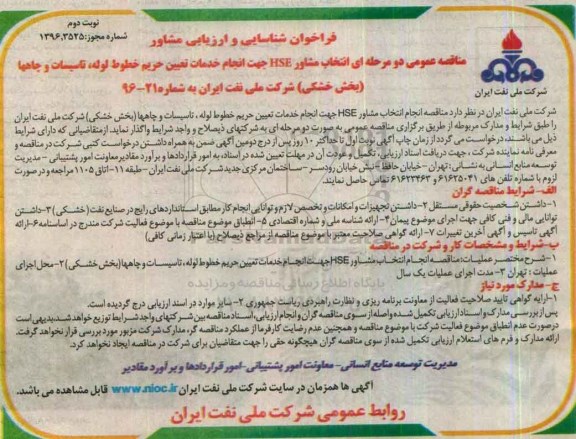 نوبت دوم
شماره مجوز: ۱۳۹۶.۳۵۲۵
فراخوان شناسایی و ارزیابی مشاور
مناقصه عمومی دو مرحله ای انتخاب مشاور HSE جهت انجام خدمات تعیین حریم خطوط لوله، تاسیسات و چاهها
(بخش خشکی) شرکت ملی نفت ایران به شماره ۲۱-۹۶
شرکت ملی نفت ایران
شرکت ملی نفت ایران در نظر دارد مناقصه انجام انتخاب مشاور HSE جهت انجام خدمات تعیین حریم خطوط لوله، تاسیسات و چاهها (بخش خشکی) شرکت ملی نفت ایران
را طبق شرایط و مدارک مربوطه از طریق برگزاری مناقصه عمومی به صورت دو مرحله ای به شرکتهای ذیصلاح و واجد شرایط واگذار نماید. از متقاضیانی که دارای شرایط
ذیل می باشند درخواست می گردد از زمان چاپ آگهی نوبت اول تا حداکثر ۱۰ روز پس از درج دومین آگهی ضمن به همراه داشتن درخواست کتبی شرکت در مناقصه و
معرفی نامه نماینده شرکت، جهت دریافت اسناد ارزیابی، تکمیل و عودت آن در مهلت تعیین شده در اسناد، به امور قراردادها و برآورد مقادیر معاونت امور پشتیبانی - مدیریت
توسعه منابع انسانی به نشانی: تهران - خیابان حافظ - نبش خیابان رودسر - ساختمان مرکزی جدید شرکت ملی نفت ایران - طبقه ۱۱- اتاق ۱۱۰۵ مراجعه و در صورت
لزوم با شماره تلفن های ۶۱۶۲۵۰۴۱ و ۶۱۶۲۳۴۶۳ تماس حاصل نمایند.
الف- شرایط مناقصه گران
۱- داشتن شخصیت حقوقی مستقل ۲- داشتن تجهیزات و امکانات و تخصص لازم و توانایی انجام کار مطابق استانداردهای رایج در صنایع نفت (خشکی) ۳- داشتن
توانایی مالی و فنی کافی جهت اجرای موضوع پیمان ۴- ارائه شناسه ملی و شماره اقتصادی ۵- انطباق موضوع مناقصه با موضوع فعالیت شرکت مندرج در اساسنامه ۶- ارائه
آگهی تاسیس و آگهی آخرین تغییرات ۷- ارائه گواهی صلاحیت معتبر با موضوع مناقصه از مراجع ذیصلاح (با اعتبار زمانی کافی)
ب- شرایط و مشخصات کار و شرکت در مناقصه
۱- شرح مختصر عملیات: مناقصه انجام انتخاب مشاور HSE جهت انجام خدمات تعیین حریم خطوط لوله، تاسیسات و چاهها (بخش خشکی) ۲- محل اجرای
عملیات: تهران ۳- مدت اجرای عملیات یک سال
ج- مدارک مورد نیاز
۱- ارایه گواهی تایید صلاحیت فعالیت از معاونت برنامه ریزی و نظارت راهبردی ریاست جمهوری ۲- سایر موارد در اسناد ارزیابی درج گردیده است.
پس از بررسی مدارک و اسناد ارزیابی تکمیل شده واصله از سوی مناقصه گران و انجام ارزیابی، اسناد مناقصه بین شرکتهای واجد شرایط توزیع خواهد شد. بدیهی است
در صورت عدم انطباق موضوع فعالیت شرکت با موضوع مناقصه و همچنین عدم رضایت کارفرما از عملکرد مناقصه گر، مدارک شرکت مزبور مورد بررسی قرار نخواهد گرفت.
ارائه مدارک و فرم های استعلام ارزیابی تکمیل شده از سوی مناقصه گران هیچگونه حقی را جهت متقاضیان برای شرکت در مناقصه ایجاد نخواهد کرد.
مدیریت توسعه منابع انسانی- معاونت امور پشتیبانی- امور قراردادها و برآورد مقادیر
آگهی ها همزمان در سایت شرکت ملی نفت ایران www.nioc.ir قابل مشاهده می باشد.
روابط عمومی شرکت ملی نفت ایران